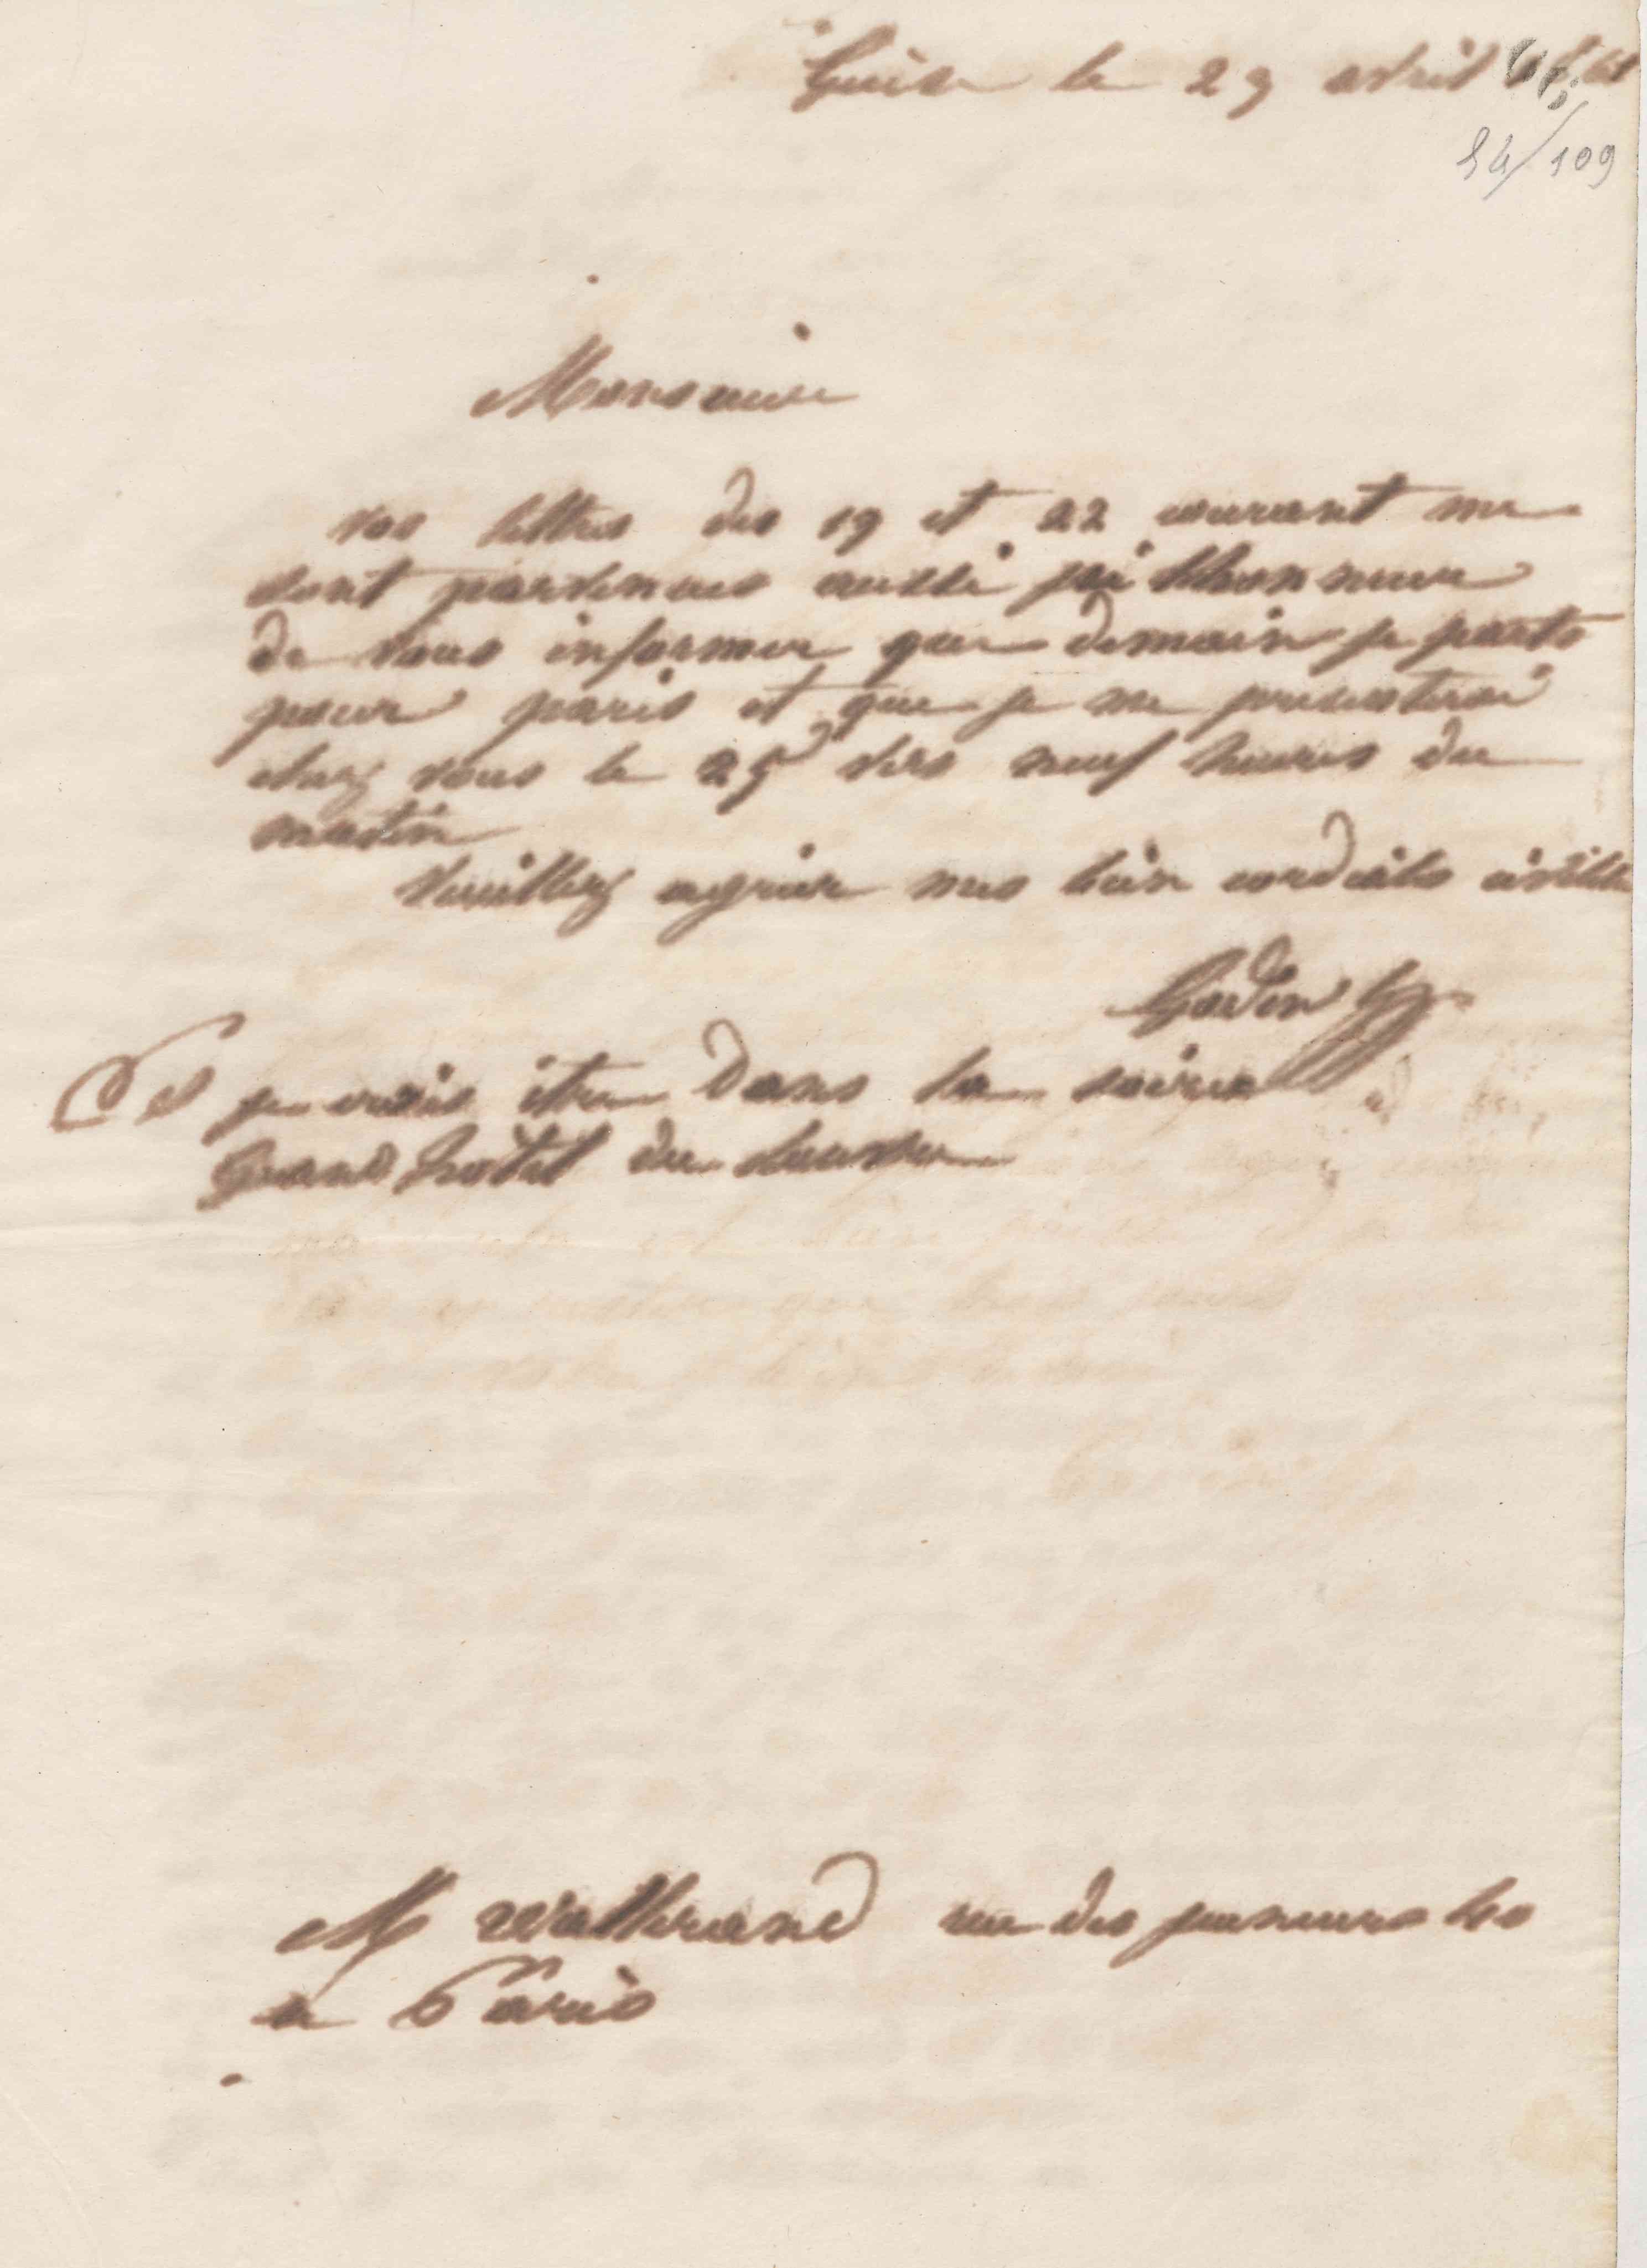 Guise le 23 avril
54/109
Monsieur
vos lettres des 19 et 22 courant me
sont parvenues aussi j'ai l'honneur
de vous informer que demain je parts
pour paris et que je me presenterai
chez vous le 25 vers neuf heures du
matin
Veuillez agréer mes bien cordiales civilités
Godin
Ps je vais être dans la soirée
Grand hotel du Louvre
M Wallerand rue des jeuneurs 40
a Paris